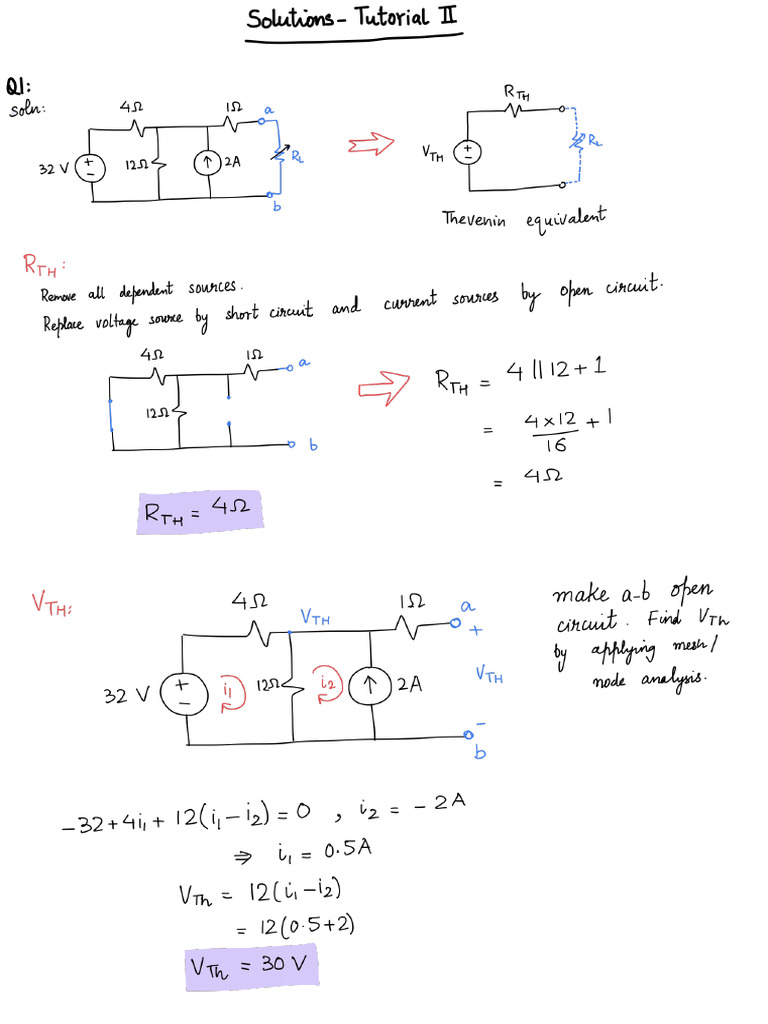 Solutions - Tutorial II
Q1:
Soln:
4Ω 1Ω a
32 V + - 12Ω 2A RL
b
RTH
VTH + - RL
Thevenin equivalent
RTH:
Remove all dependent sources.
Replace voltage source by short circuit and current sources by open circuit.
4Ω 1Ω a
12Ω
b
RTH = 4 || 12 + 1
= 4 × 12 / 16 + 1
= 4Ω
RTH = 4Ω
VTH:
4Ω VTH 1Ω a
+
32 V + - i1 12Ω i2 2A VTH
-
b
make a-b open
circuit. Find VTh
by applying mesh/
node analysis.
-32+4i1 + 12(i1 - i2) = 0 , i2 = - 2A
⇒ i1 = 0.5A
VTh = 12(i1 - i2)
= 12(0.5+2)
VTh = 30 V